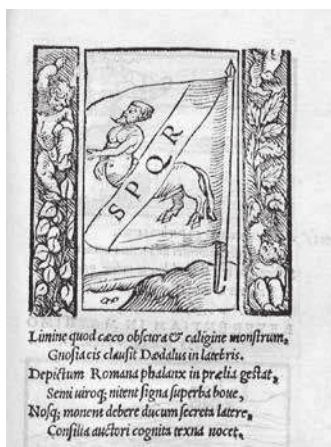 SPQR
Limine quod cæco obscura & caligine monstrum,
Gnosiacis clausit Dædalus in latebris.
Depictum Romana phalanx in prælia gestat,
Semiuiroq; nitent signa superba boue,
Nosq; monent debere ducum secreta latere,
Consilia auctori cognita texna nocet,